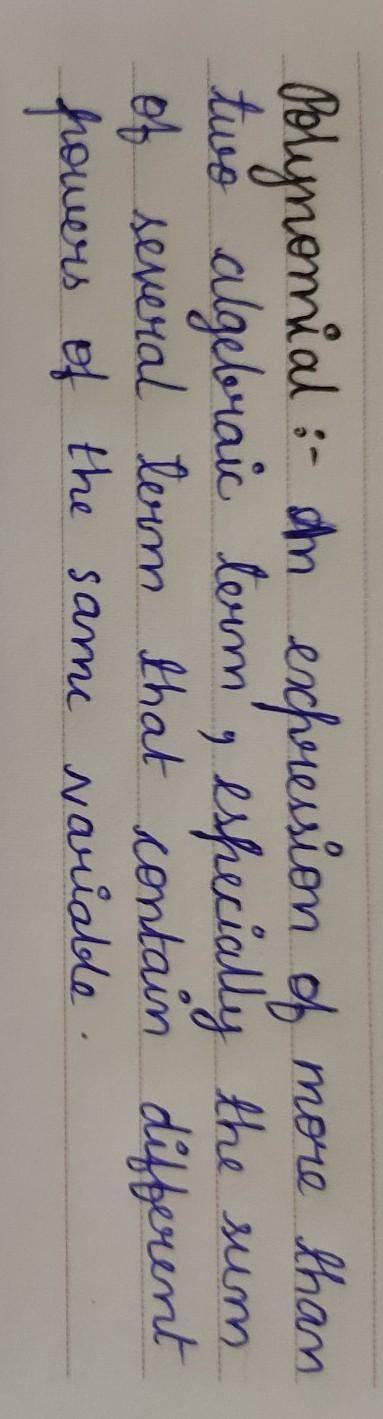 Polynomial :- An expression of more than
two algebraic term, especially the sum
of several term that contain different
powers of the same variable.